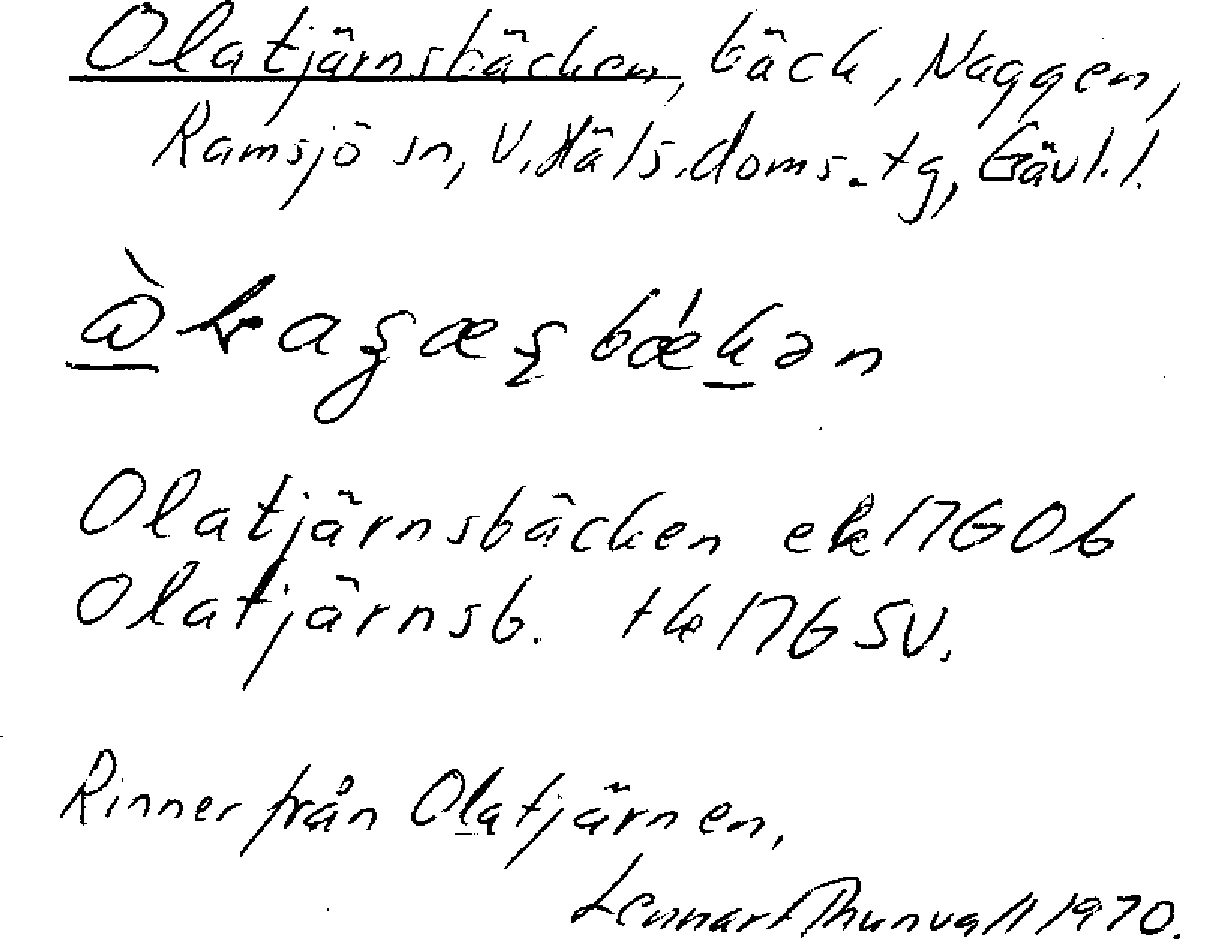 Olatjärnsbäcken, bäck, Naggen,
Ramsjö sn, V. Häls. doms. tg, Gävl. l.
Olatjärnsbäcken ek 17G 0b
Olatjärnsb. tk 17G SV.
Rinner från Olatjärnen.
Lennart Thunvall 1970.